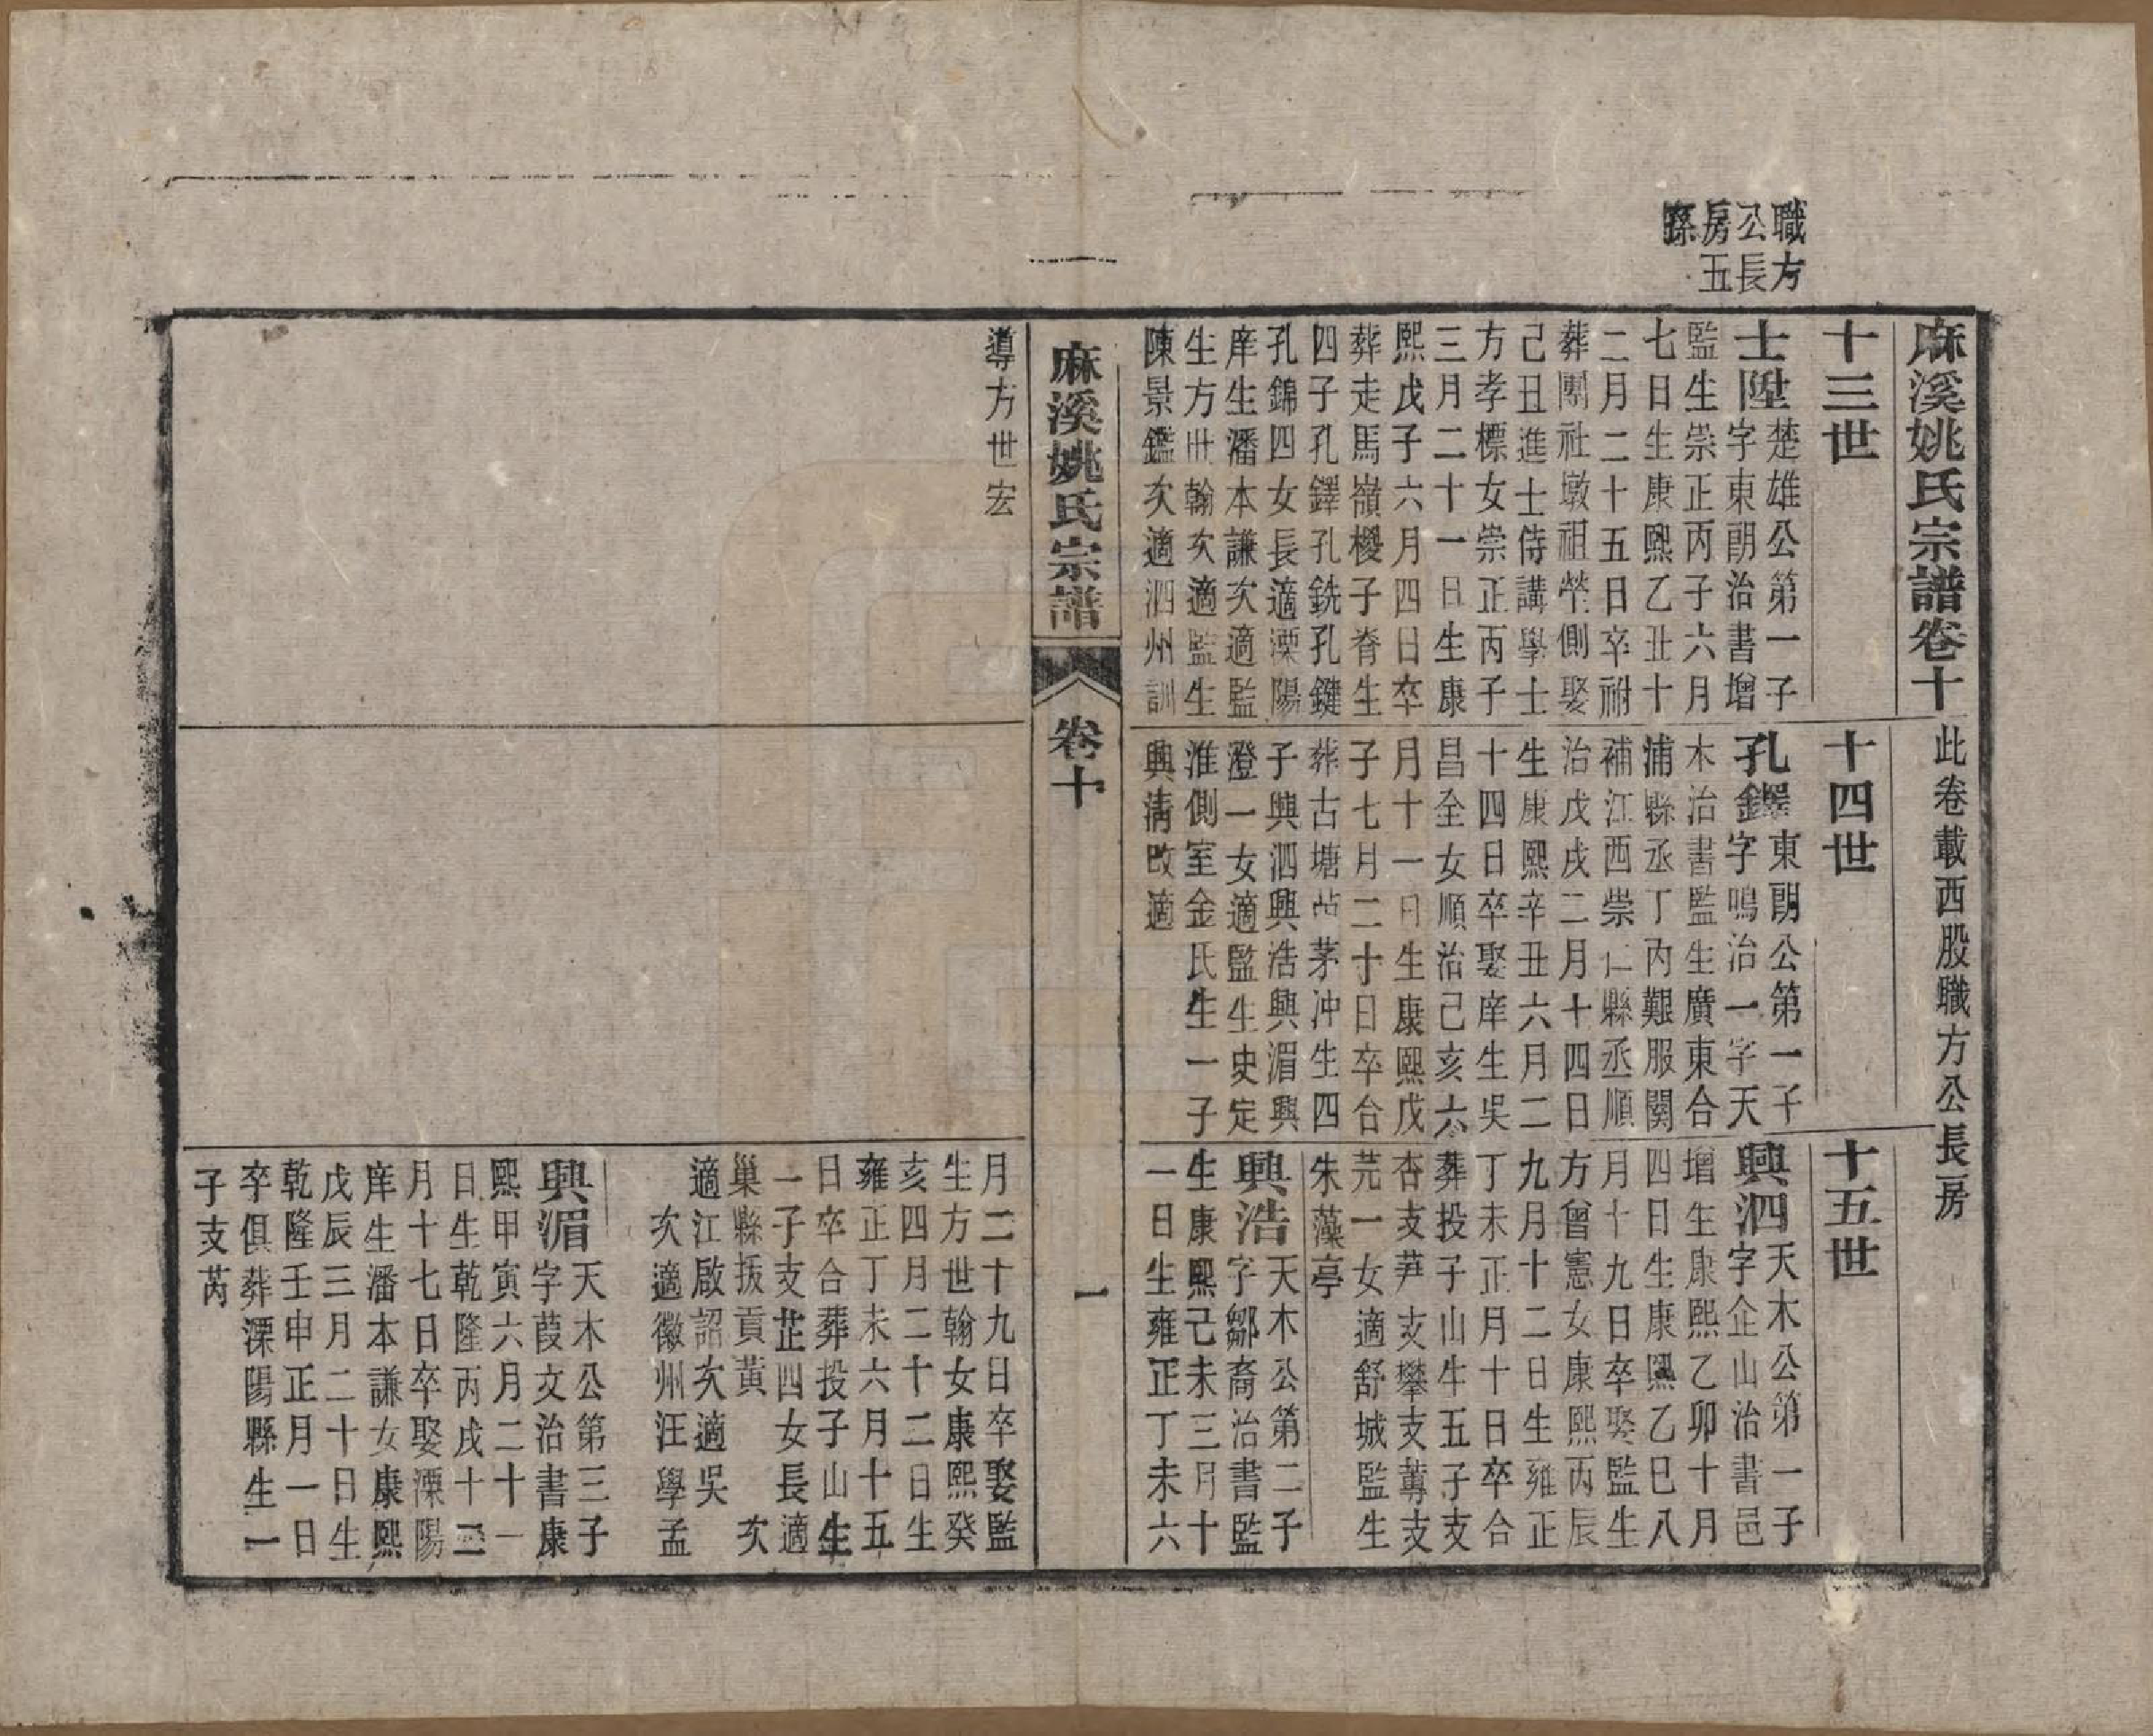 職方
公長
房五
孫
麻溪姚氏宗譜卷十
此卷載西股職方公長房
十三世
士陞楚雄公第一子
字東朗治書增
監生崇正丙子六月
七日生康熙乙丑十
二月二十五日卒祔
葬團社墩祖塋側娶
己丑進士侍講學士
方孝標女崇正丙子
三月二十一日生康
熙戊子六月四日卒
葬走馬嶺櫻子脊生
四子孔鐸孔銑孔鍵
孔錦四女長適溧陽
庠生潘本謙次適監
生方世翰次適監生
陳景鑑次適泗州訓
導方世宏
十四世
孔鐸東朗公第一子
字鳴治一字天
木治書監生廣東合
浦縣丞丁內艱服闋
補江西崇仁縣丞順
治戊戌二月十四日
生康熙辛丑六月二
十四日卒娶庠生吳
昌全女順治己亥六
月十一日生康熙戊
子七月二十日卒合
葬古塘茅冲生四
子興泗興浩興湄興
澄一女適監生史定
淮側室金氏生一子
興清改適
十五世
興泗天木公第一子
字企山治書邑
增生康熙乙卯十月
四日生康熙乙巳八
月十九日卒娶監生
方曾憲女康熙丙辰
九月十二日生雍正
丁未正月十日卒合
葬投子山生五子支
杏支芛支攀支蓴支
芫一女適舒城監生
朱藻亭
興浩天木公第二子
字鄒裔治書監
生康熙己未三月十
一日生雍正丁未六
月二十九日卒娶監
生方世翰女康熙癸
亥四月二十二日生
雍正丁未六月十五
日卒合葬投子山生
一子支芷四女長適
巢縣拔貢黃　次
適江啟詔次適吳
次適徽州汪學孟
興湄天木公第三子
字葭文治書康
熙甲寅六月二十一
日生乾隆丙戌十二
月十七日卒娶溧陽
庠生潘本謙女康熙
戊辰三月二十日生
乾隆壬申正月一日
卒俱葬溧陽縣生一
子支芮
麻溪姚氏宗譜
卷十
一